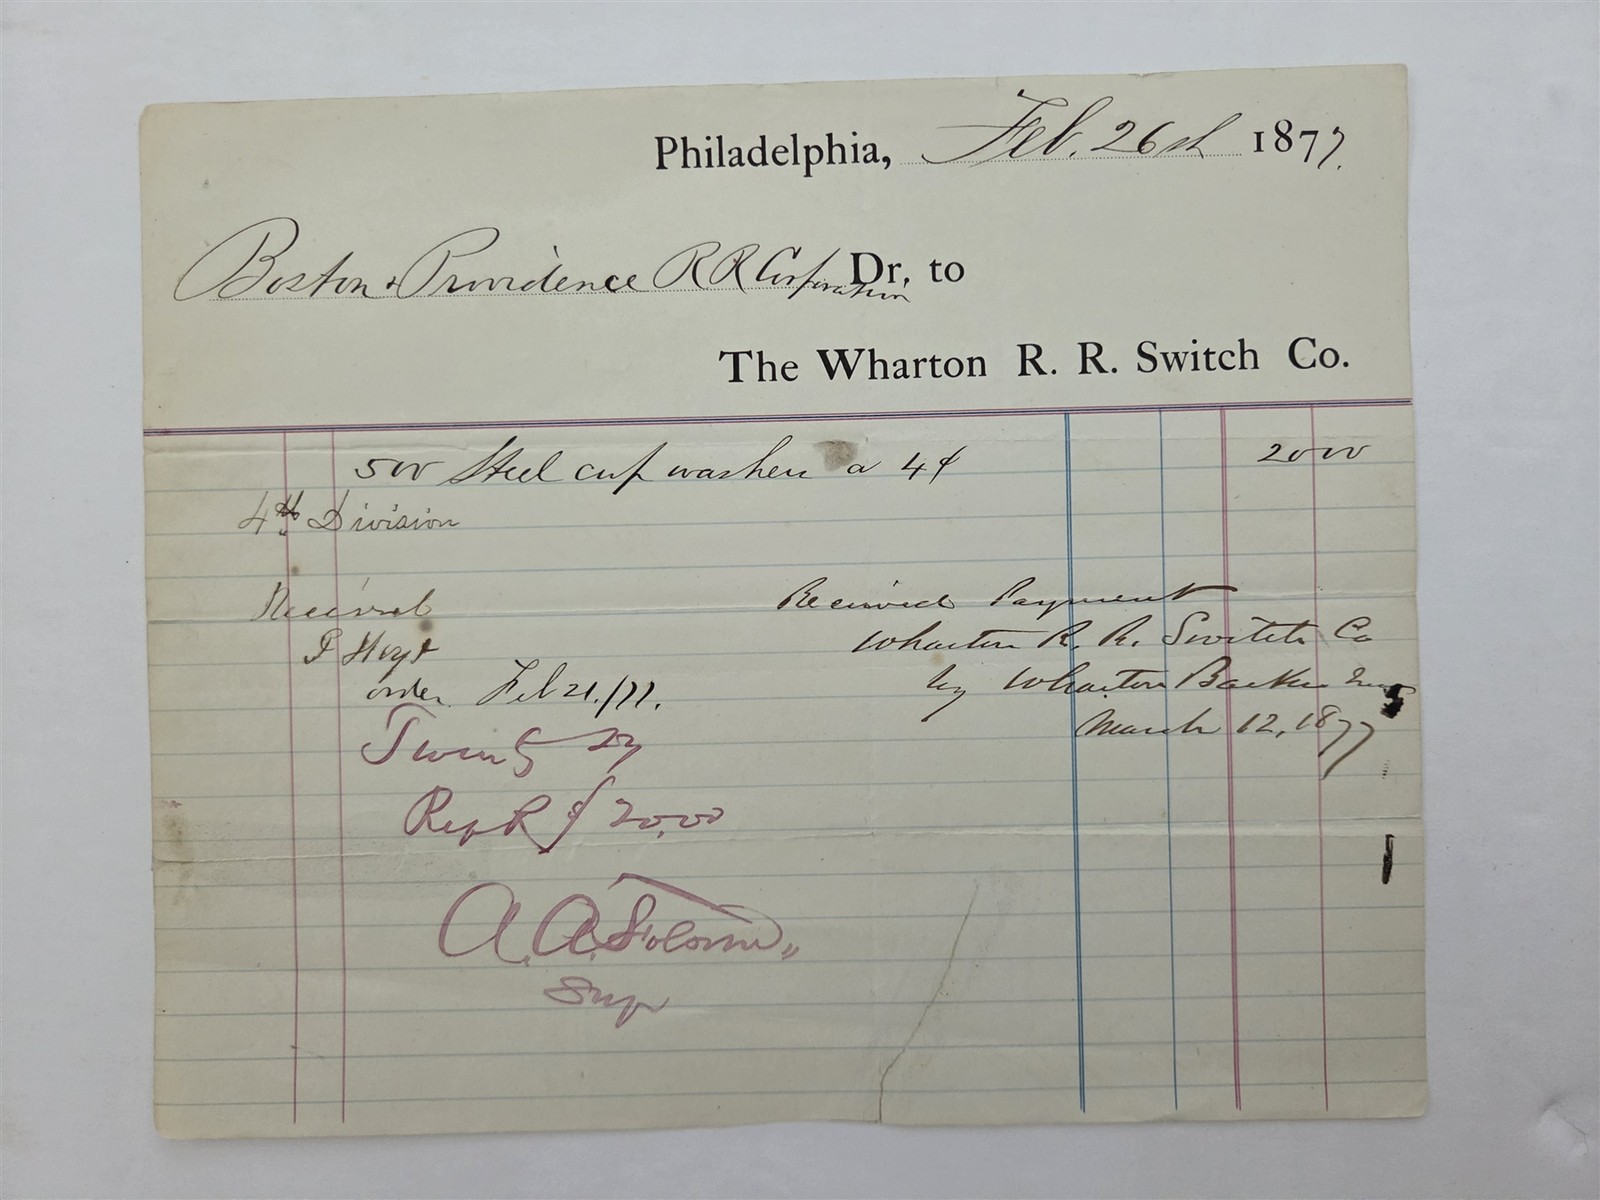 Philadelphia, Feb. 26th 1877.
Boston & Providence R R Corporation Dr, to
The Wharton R. R. Switch Co.
500 Steel cup washers a 4¢ 20 00
4th Division
Received
P Hoyt
order Feb 21./77.
Twenty
Rep R 20.00
A. A. Folsom
Sup
Received Payment
Wharton R. R. Switch Co
by Wharton Barker
March 12, 1877